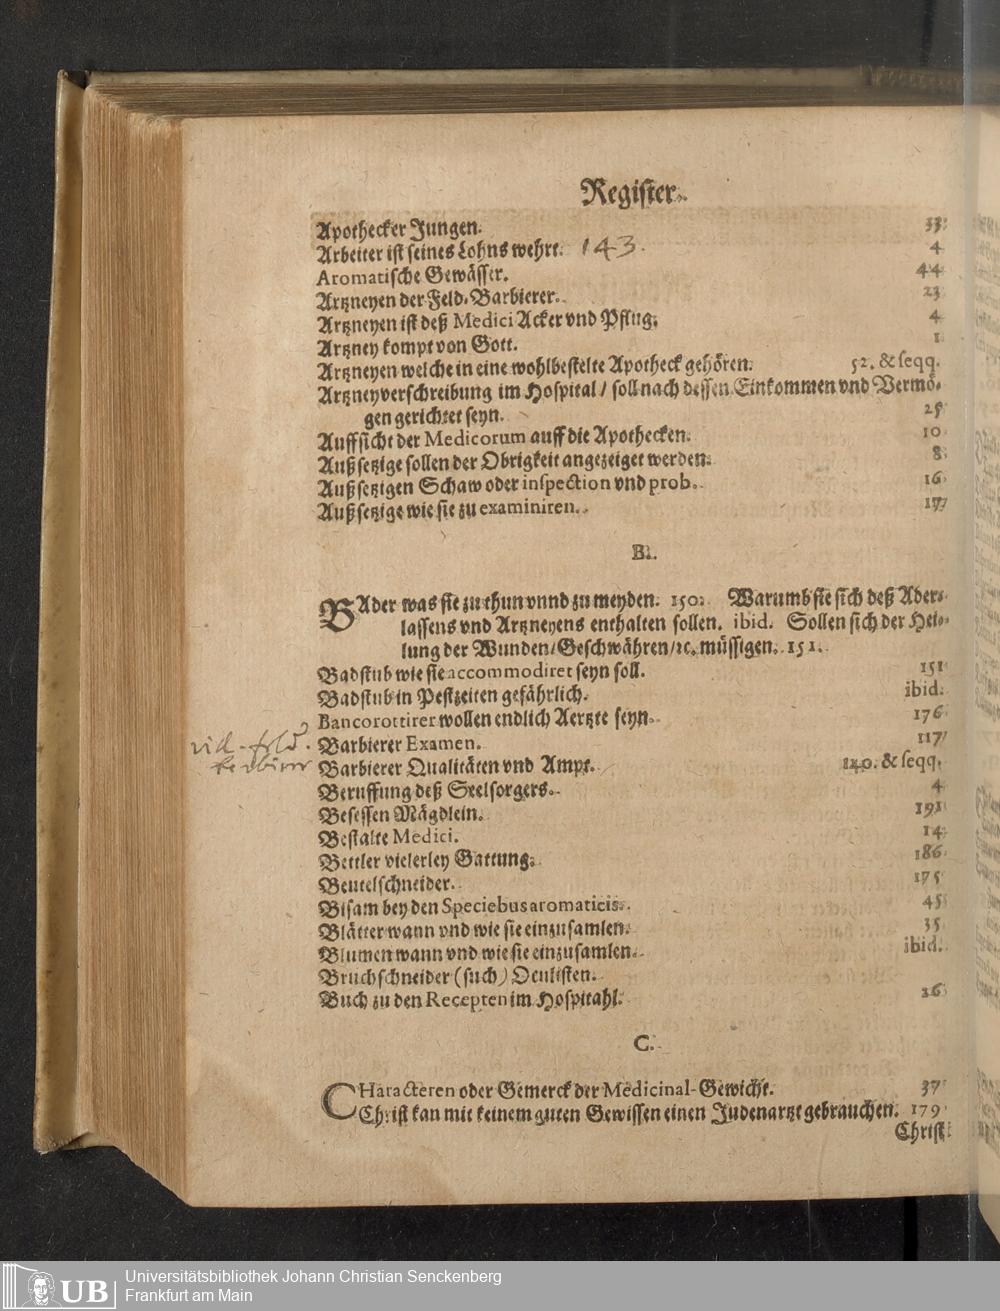 Register.
Apothecker Jungen. 33
Arbeiter ist seines Lohns wehrt. 143. 4
Aromatische Gewässer. 44
Artzneyen der Feld-Barbierer. 23
Artzneyen ist deß Medici Acker vnd Pflug. 4
Artzney kompt von Gott. 1
Artzneyen welche in eine wohlbestelte Apotheck gehören. 52. & seqq.
Artzneyverschreibung im Hospital / soll nach dessen Einkommen vnd Vermö-
gen gerichtet seyn. 25
Auffsicht der Medicorum auff die Apothecken. 10
Außsetzige sollen der Obrigkeit angezeiget werden. 8
Außsetzigen Schaw oder inspection vnd prob. 16
Außsetzige wie sie zu examiniren. 17
B.
BAder was sie zu thun vnnd zu meyden. 150. Warumb sie sich deß Ader-
lassens vnd Artzneyens enthalten sollen. ibid. Sollen sich der Hei-
lung der Wunden / Geschwähren / ꝛc. müssigen. 151.
Badstub wie sie accommodiret seyn soll. 151
Badstub in Pestzeiten gefährlich. ibid.
Bancorottirer wollen endlich Aertzte seyn. 176
vid. Barbierer Examen. 117
Barbierer Qualitäten vnd Ampt. 140. & seqq.
Beruffung deß Seelsorgers. 4
Besessen Mägdlein. 191
Bestalte Medici. 14
Bettler vielerley Gattung. 186
Beutelschneider. 175
Bisam bey den Speciebus aromaticis. 45
Blätter wann vnd wie sie einzusamlen. 35
Blumen wann vnd wie sie einzusamlen. ibid.
Bruchschneider (such) Oculisten.
Buch zu den Recepten im Hospitahl. 26
C.
CHaracteren oder Gemerck der Medicinal-Gewicht. 37
Christ kan mit keinem guten Gewissen einen Judenartzt gebrauchen. 179
Christ
UB
Universitätsbibliothek Johann Christian Senckenberg
Frankfurt am Main